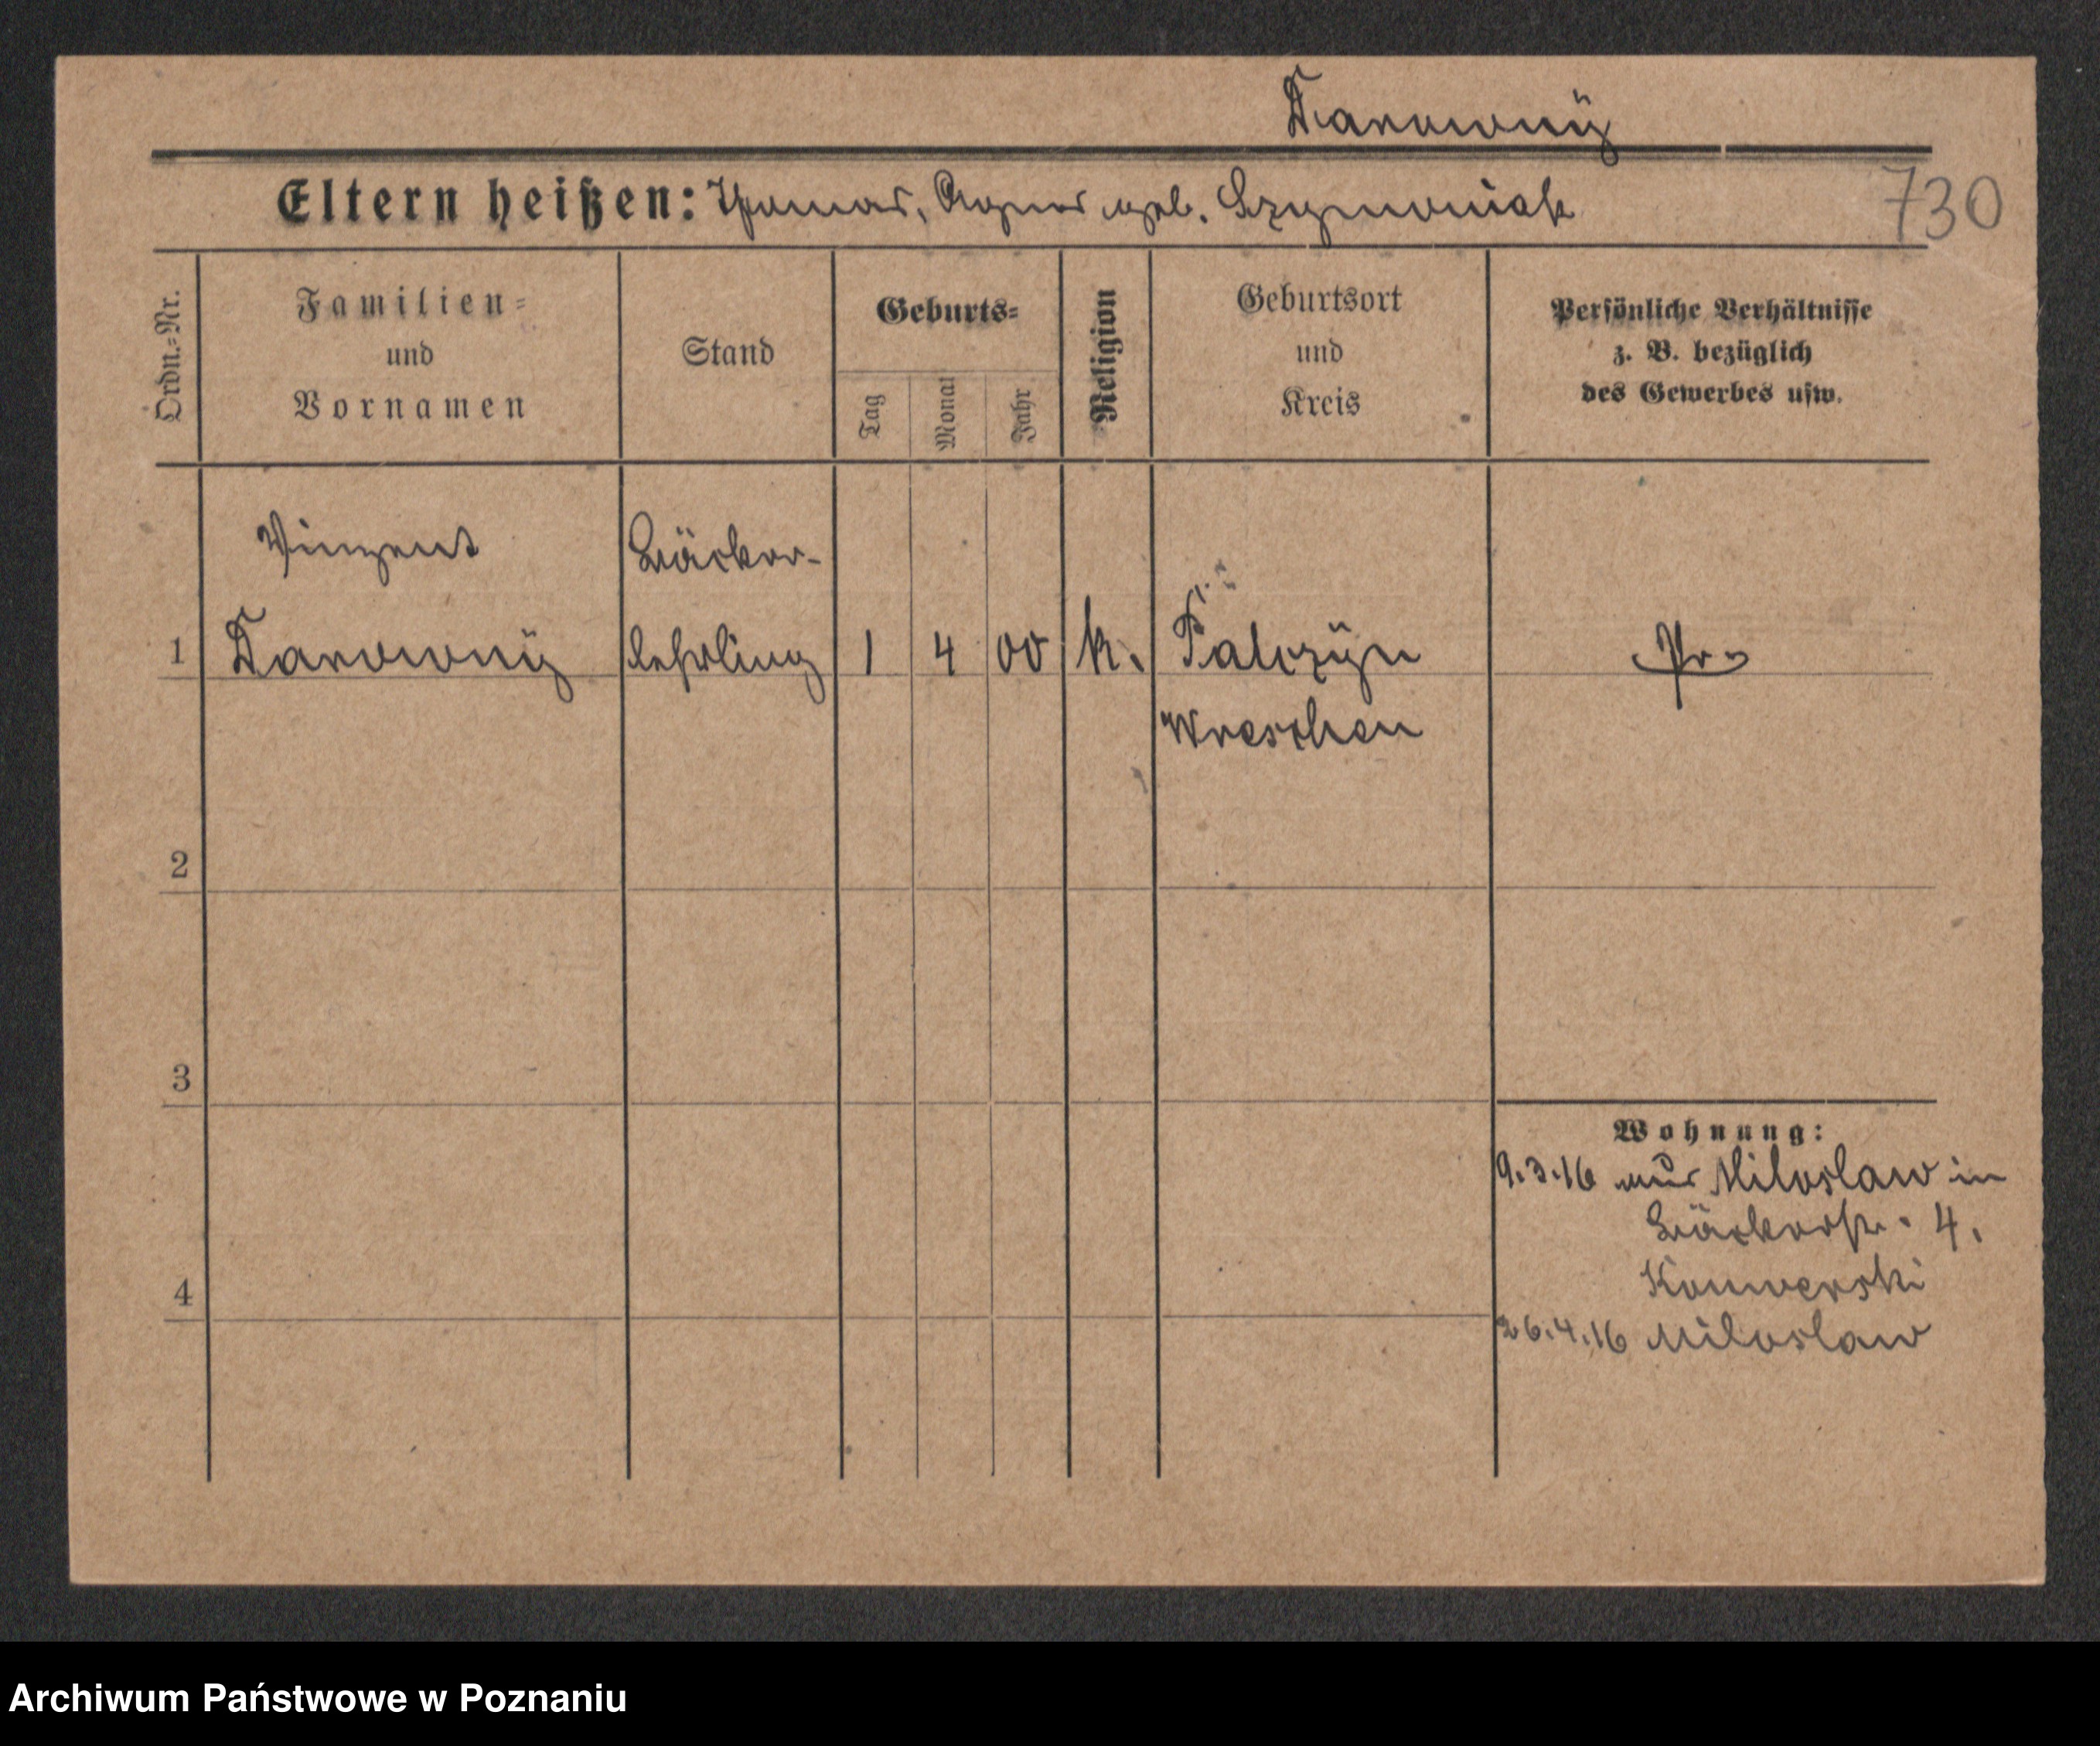 Darownÿ
Eltern heißen: Thomas, Agnes geb. Szymoniak
730
Ordn.-Nr.
Familien-
und
Vornamen
Stand
Geburts-
Tag
Monat
Jahr
Religion
Geburtsort
und
Kreis
Persönliche Verhältnisse
z. B. bezüglich
des Gewerbes usw.
Vinzent Bäcker-
1 Darownÿ lehrling 1 4 00 k. Palczÿn Pr.
Wreschen
2
3
Wohnung:
9.3.16 aus Miloslaw in
Bäckerstr. 4.
Konwerski
4
26.4.16 Miloslaw
Archiwum Państwowe w Poznaniu